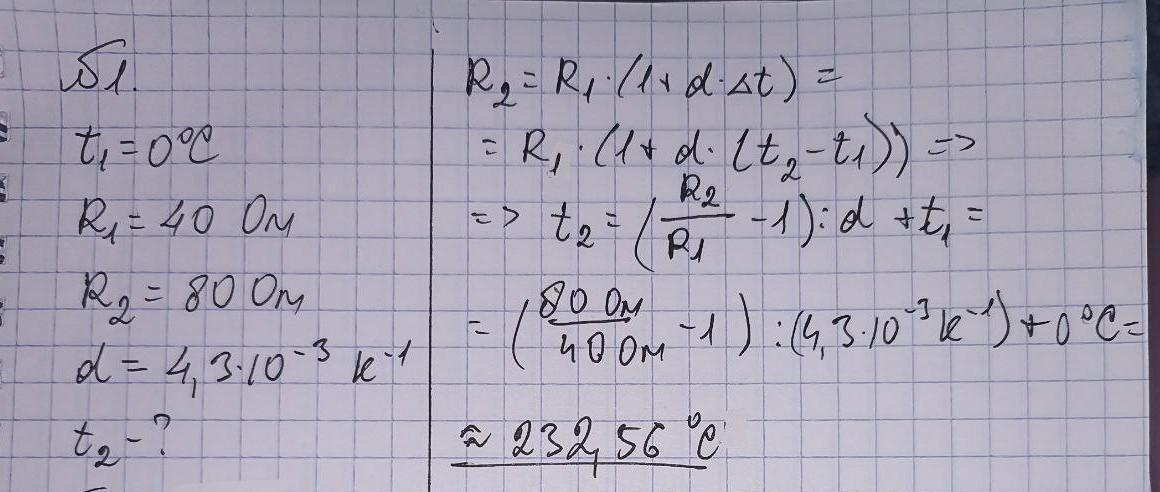 №1.
t₁ = 0°C
R₁ = 40 Ом
R₂ = 80 Ом
α = 4,3·10⁻³ К⁻¹
t₂ - ?
R₂ = R₁·(1+α·Δt) =
= R₁·(1+α·(t₂-t₁)) =>
=> t₂ = (R₂/R₁ - 1):α + t₁ =
= (80 Ом/40 Ом - 1):(4,3·10⁻³ К⁻¹) + 0°C =
≈ 232,56 °C